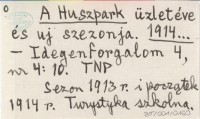 A Huszpark üzletéve
és uj szezonja. 1914...
- Idegenforgalom 4,
nr 4: 10. TNP
Sezon 1913 r. i początek
1914 r. Turystyka szkolna.